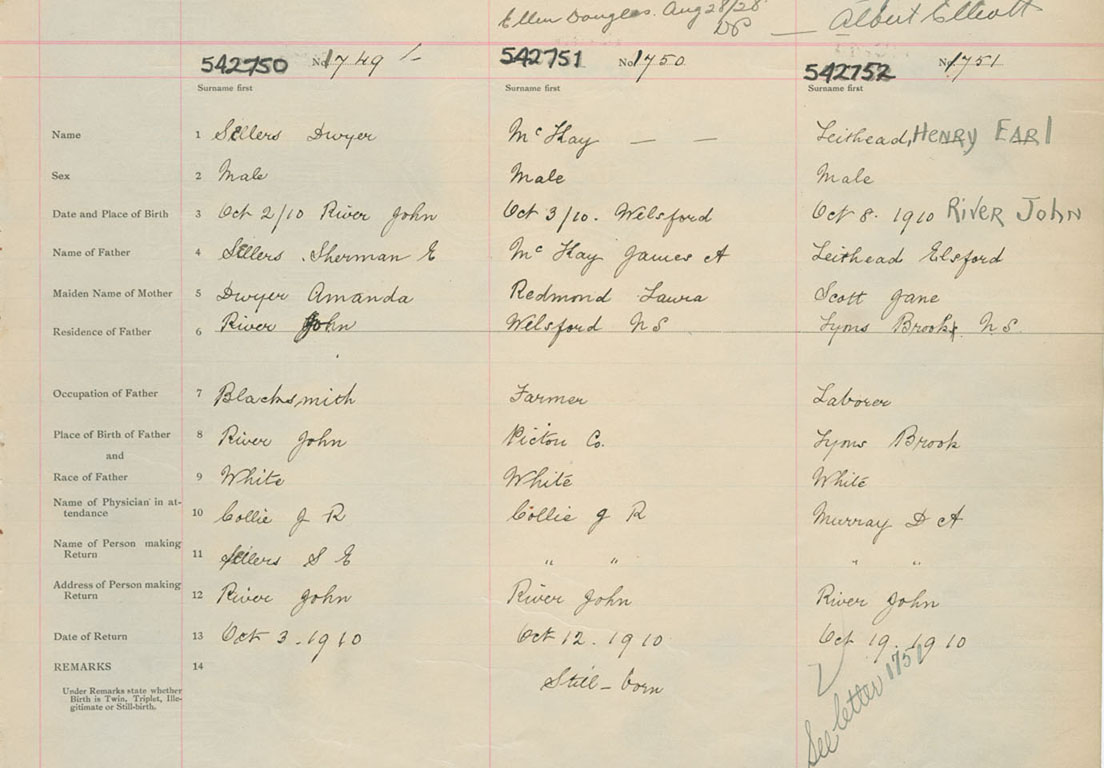 Ellen Douglas. Aug 28/28 Albert Elliott
DP
542750 No 1749 542751 No 1750 542752 No 1751
Surname first Surname first Surname first
Name 1 Sellers Dwyer McKay — — Leithead, HENRY EARL
Sex 2 Male Male Male
Date and Place of Birth 3 Oct 2/10 River John Oct 3/10. Welsford Oct 8. 1910 River John
Name of Father 4 Sellers. Sherman E McKay James A Leithead Elsford
Maiden Name of Mother 5 Dwyer Amanda Redmond Laura Scott Jane
Residence of Father 6 River John Welsford NS Lyons Brook, NS
Occupation of Father 7 Blacksmith Farmer Laborer
Place of Birth of Father 8 River John Pictou Co. Lyons Brook
and
Race of Father 9 White White White
Name of Physician in at-
tendance 10 Collie J R Collie J R Murray D A
Name of Person making
Return 11 Sellers S E " " " "
Address of Person making
Return 12 River John River John River John
Date of Return 13 Oct 3-1910 Oct 12. 1910 Oct 19. 1910
REMARKS 14
Under Remarks state whether
Birth is Twin, Triplet, Ille-
gitimate or Still-birth.
Still-born
See letter 1751